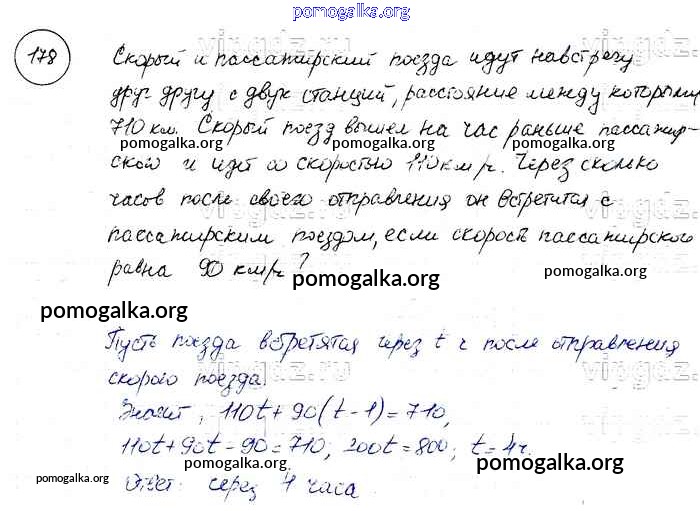 pomogalka.org
178
Скорый и пассажирский поезда идут навстречу
друг другу с двух станций, расстояние между которыми
710 км. Скорый поезд вышел на час раньше пассажир-
pomogalka.org pomogalka.org pomogalka.org
ской и идет со скоростью 110 км/ч. Через сколько
часов после своего отправления он встретится с
pomogalka.org
пассажирским поездом, если скорость пассажирского
равна 90 км/ч?
pomogalka.org pomogalka.org
pomogalka.org
Пусть поезда встретятся через t ч после отправления
скорого поезда.
Значит, 110t + 90(t - 1) = 710,
110t + 90t - 90 = 710; 200t = 800; t = 4 ч.
pomogalka.org pomogalka.org
pomogalka.org
Ответ: через 4 часа
pomogalka.org